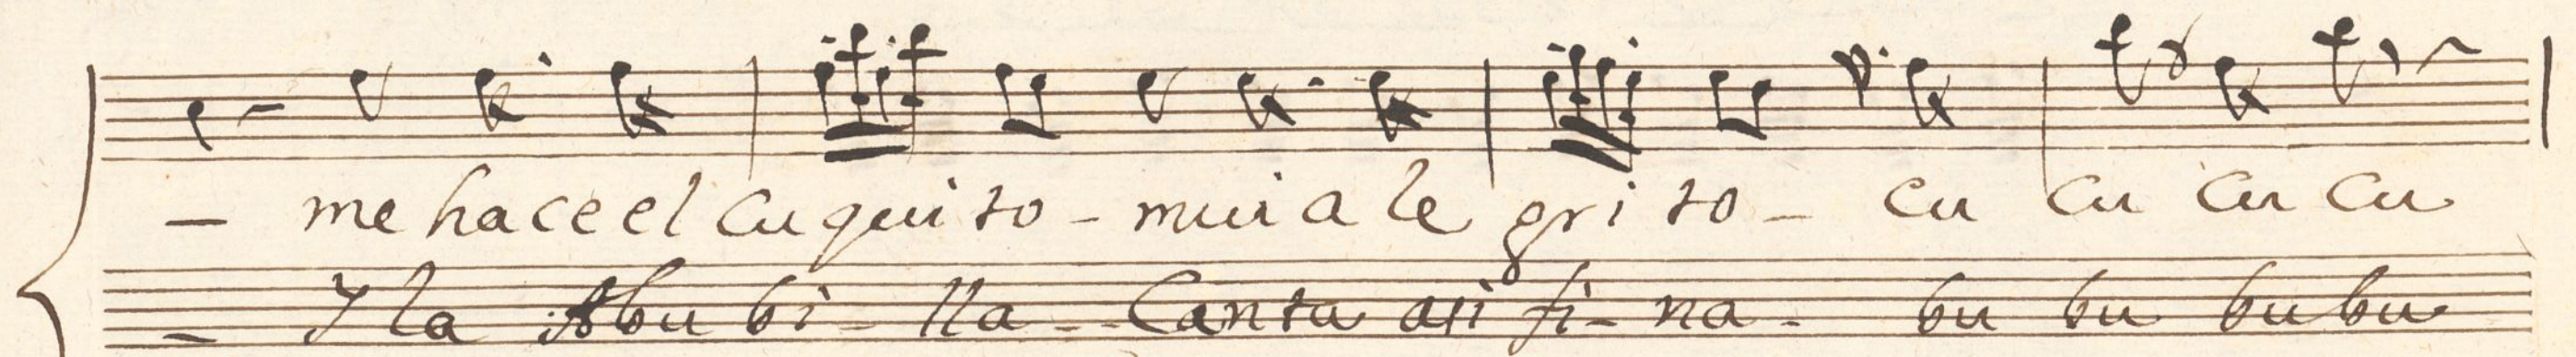 – me hace el cu qui to – mui a le gri to – cu cu cu cu
– Y la Abu bi – lla – – Canta asi fi – na – bu bu bu bu